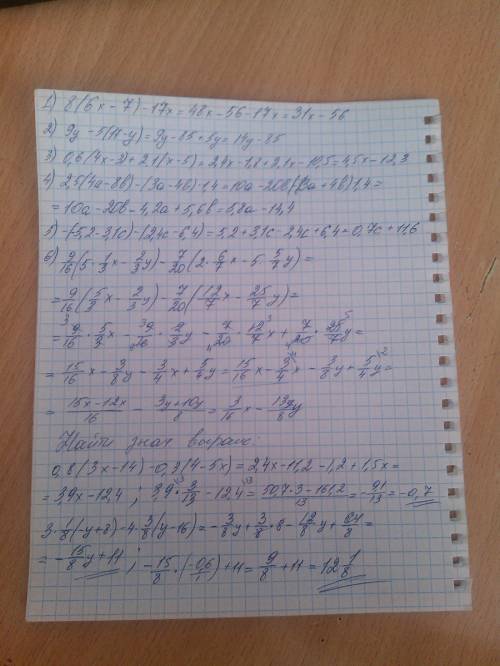 1) 8(6x-7)-17x=48x-56-17x=31x-56
2) 9y-5(17-y)=9y-85+5y=14y-85
3) 0,6(4x-3)+2,1(x-5)=2,4x-1,8+2,1x-10,5=4,5x-12,3
4) 2,5(4a-8b)-(3a-4b)·1,4=10a-20b-(3a+4b)1,4=
=10a-20b-4,2a+5,6b=5,8a-14,4
5) -(-5,2-3,1c)-(2,4c-6,4)=5,2+3,1c-2,4c+6,4=0,7c+11,6
6) 9/16(5·1/3x-2/3y)-7/20(2·6/7x-5·5/7y)=
=9/16(5/3x-2/3y)-7/20(12/7x-25/7y)=
=9/16·5/3x-9/16·2/3y-7/20·12/7x+7/20·25/7y=
=15/16x-3/8y-3/4x+5/4y=15/16x-3/4x-3/8y+5/4y=
=(15x-12x)/16-(3y+10y)/8=3/16x-13y/8
Найти знач выраж:
0,8(3x-14)-0,3(4-5x)=2,4x-11,2-1,2+1,5x=
=3,9x-12,4; 3,9·3/13-12,4=(50,7·3-161,2)/13=-91/13=-0,7
3·1/8(-y+8)-4·3/8(y-16)=-3/8y+3/8+8-12/8y+64/8=
=-15/8y+11; -15/8·(-0,6/1)+11=9/8+11=12 1/8